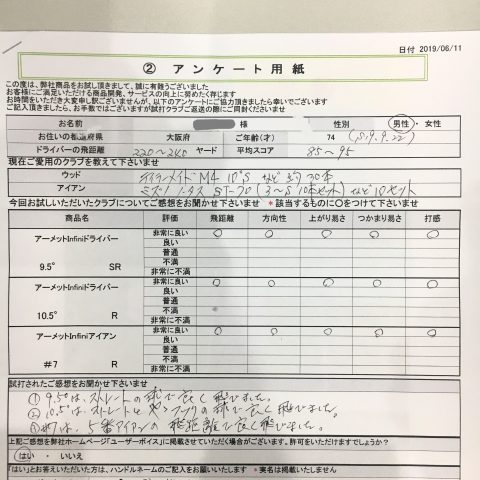 日付 2019/06/11
② アンケート用紙
この度は、弊社商品をお試し頂きまして、誠に有難うございました
お客様にご満足いただける商品開発、サービスの向上に努めたく存じます
お時間をいただき大変申し訳ございませんが、以下のアンケートにご協力頂きましたら幸いでございます
ご記入頂きましたら、お手数ではございますが試打クラブご返送の際にご同封くださいませ
お名前 様 性別 男性 ・ 女性
お住いの都道府県 大阪府 ご年齢(才) 74 (S19.9.22)
ドライバーの飛距離 220~240 ヤード 平均スコア 85~95
現在ご愛用のクラブを教えて下さいませ
ウッド テイラーメイド M4 10°S など 約30本
アイアン ミズノ ST-70 (3~S 10本セット) など 10セット
今回お試しいただいたクラブについてご感想をお聞かせ下さいませ *該当するものに○をつけて下さいませ
商品名 評価 飛距離 方向性 上がり易さ つかまり易さ 打感
アーメットInfiniドライバー 非常に良い ○ ○ ○ ○ ○
良い
普通
9.5° SR 不満
非常に不満
アーメットInfiniドライバー 非常に良い ○ ○ ○ ○ ○
良い
普通
10.5° R 不満
非常に不満
アーメットInfiniアイアン 非常に良い ○ ○ ○ ○ ○
良い
普通
#7 R 不満
非常に不満
試打されたご感想をお聞かせ下さいませ
① 9.5°は、ストレートの球で良く飛びました。
② 10.5°は、ストレートとややフックの球で良く飛びました。
③ #7は、5番アイアンの飛距離で良く飛びました。
上記ご感想を弊社ホームページ「ユーザーボイス」に掲載させていただく場合がございます。許可をいただけますでしょうか?
はい ・ いいえ
「はい」とお答えいただいた方は、ハンドルネームのご記入をお願いいたします *実名は掲載いたしません